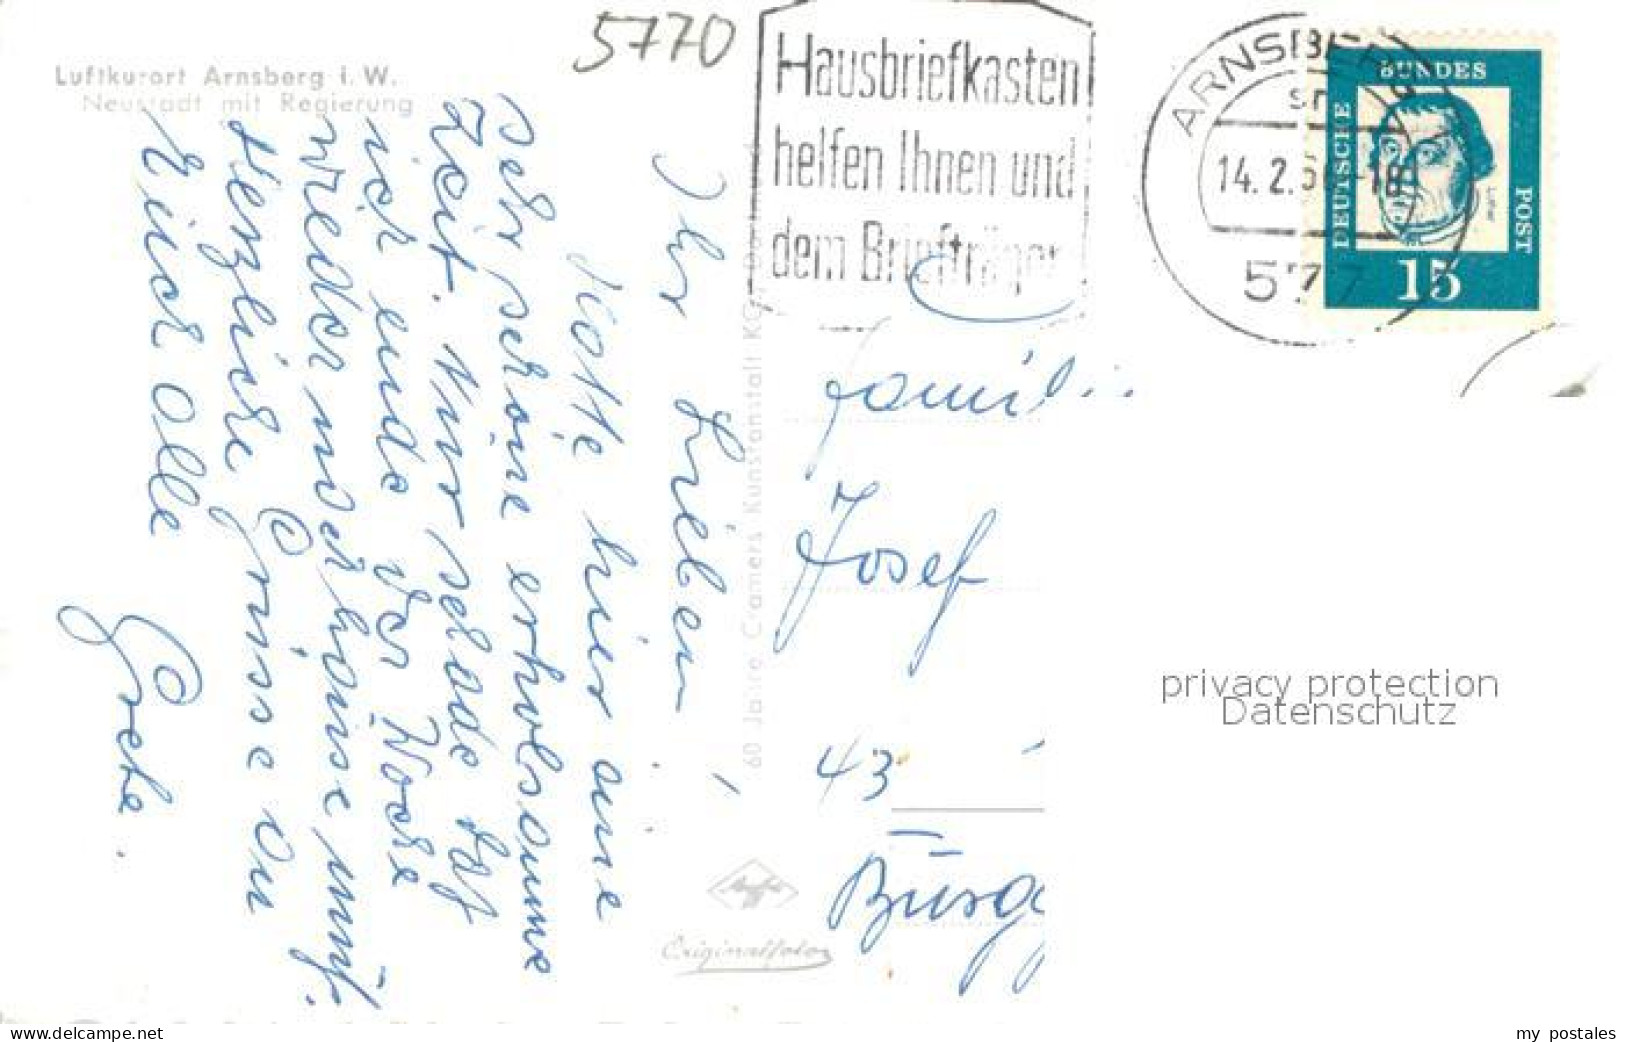 5770
Luftkurort Arnsberg i. W.
Neustadt mit Regierung
Hausbriefkasten
helfen Ihnen und
dem Briefträger
ARNSBERG
14.2.6
577
DEUTSCHE BUNDES POST
Luther
15
Ihr Lieben!
Hatte hier eine
sehr schöne erholsame
Zeit. Nur schade daß
ich ende der Woche
wieder nach hause muß.
Herzliche Grüsse an
Euch alle
Grete.
60 Jahre Cramers Kunstanstalt KG, Dortmund
Originalfoto
Famili
Josef
43
privacy protection
Datenschutz
www.delcampe.net
my_postales